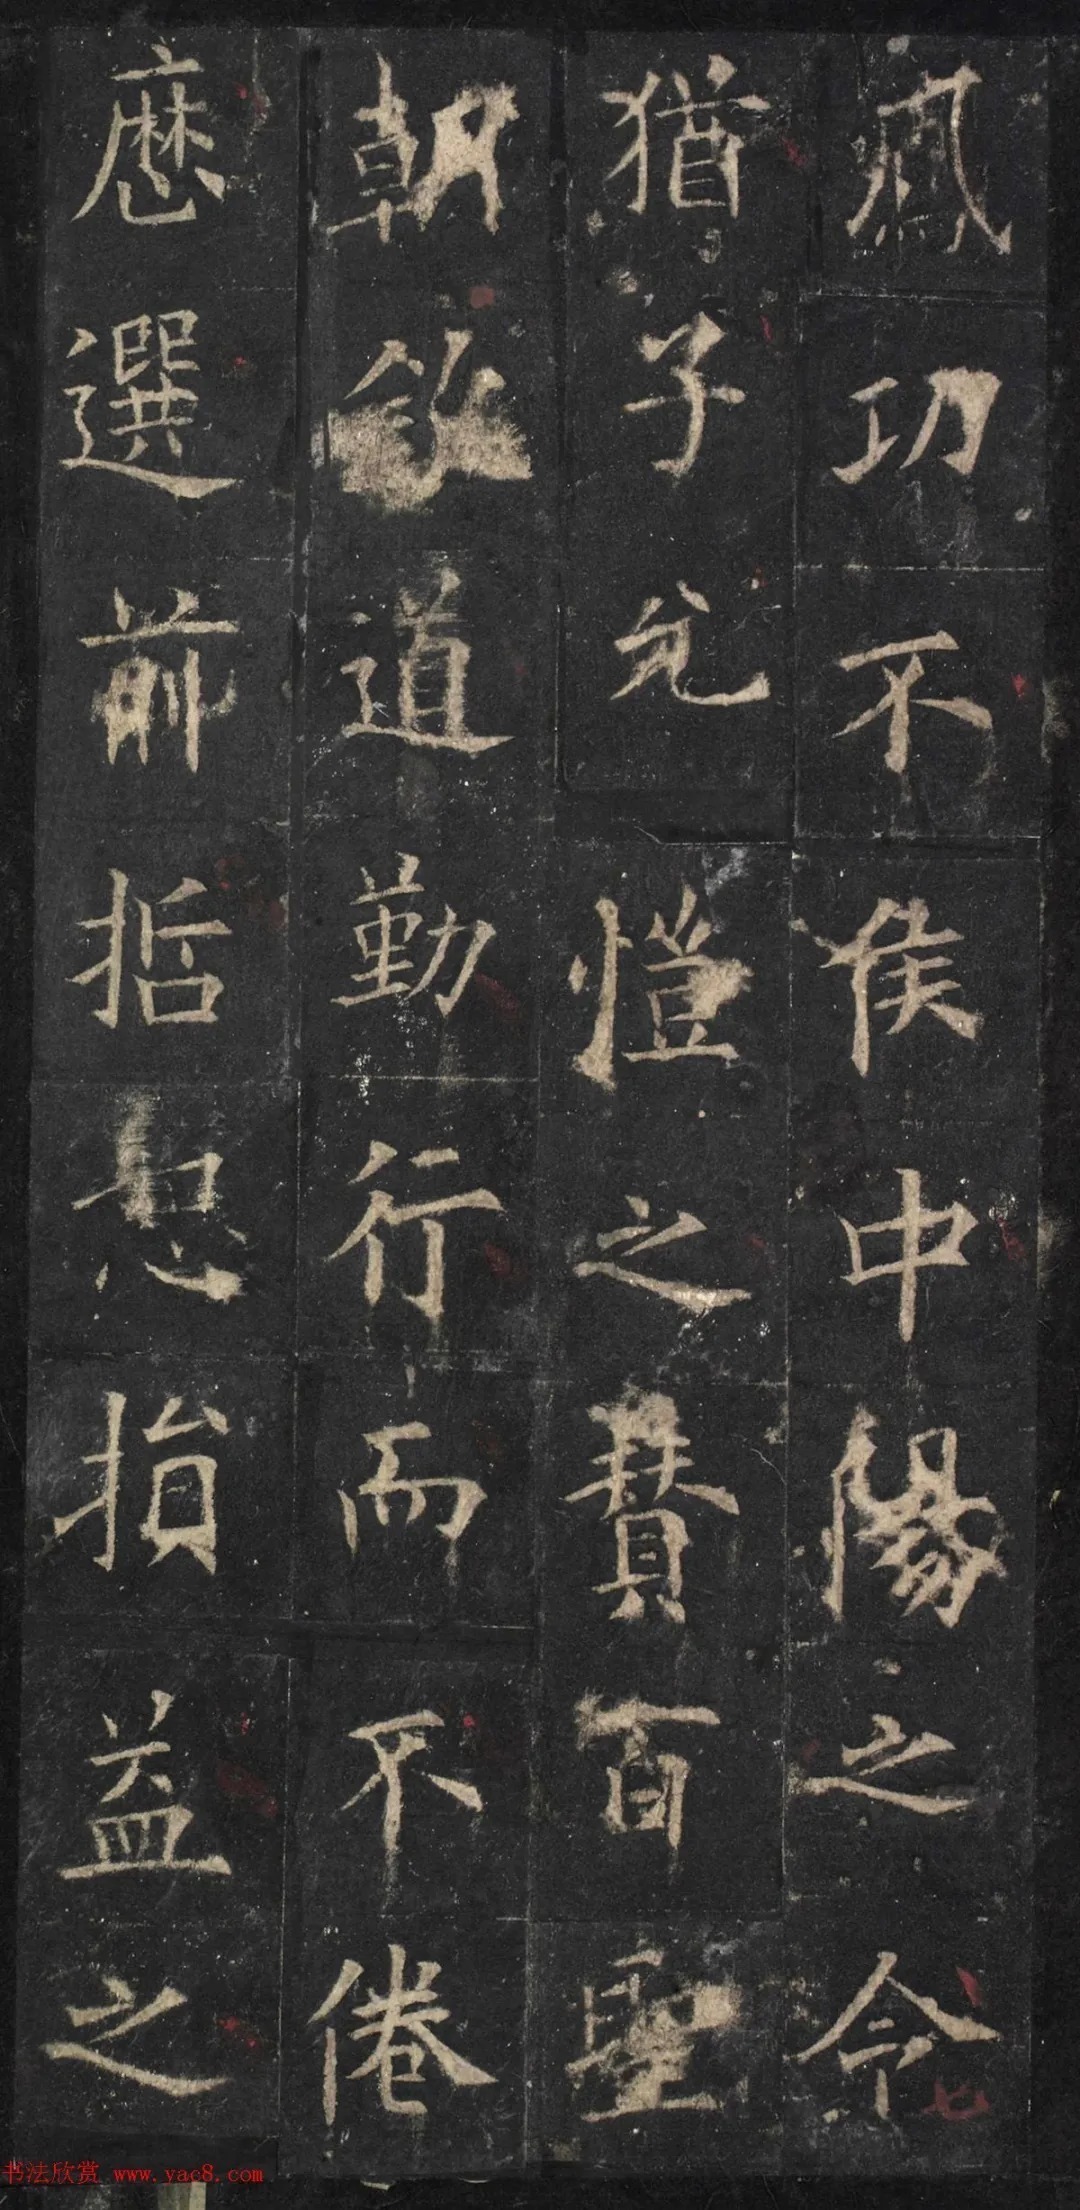 風功不俟中陽之令
猶子允愷之賛百聖
朝道勤行而不倦
歷選前哲思損益之
书法欣赏 www.yac8.com